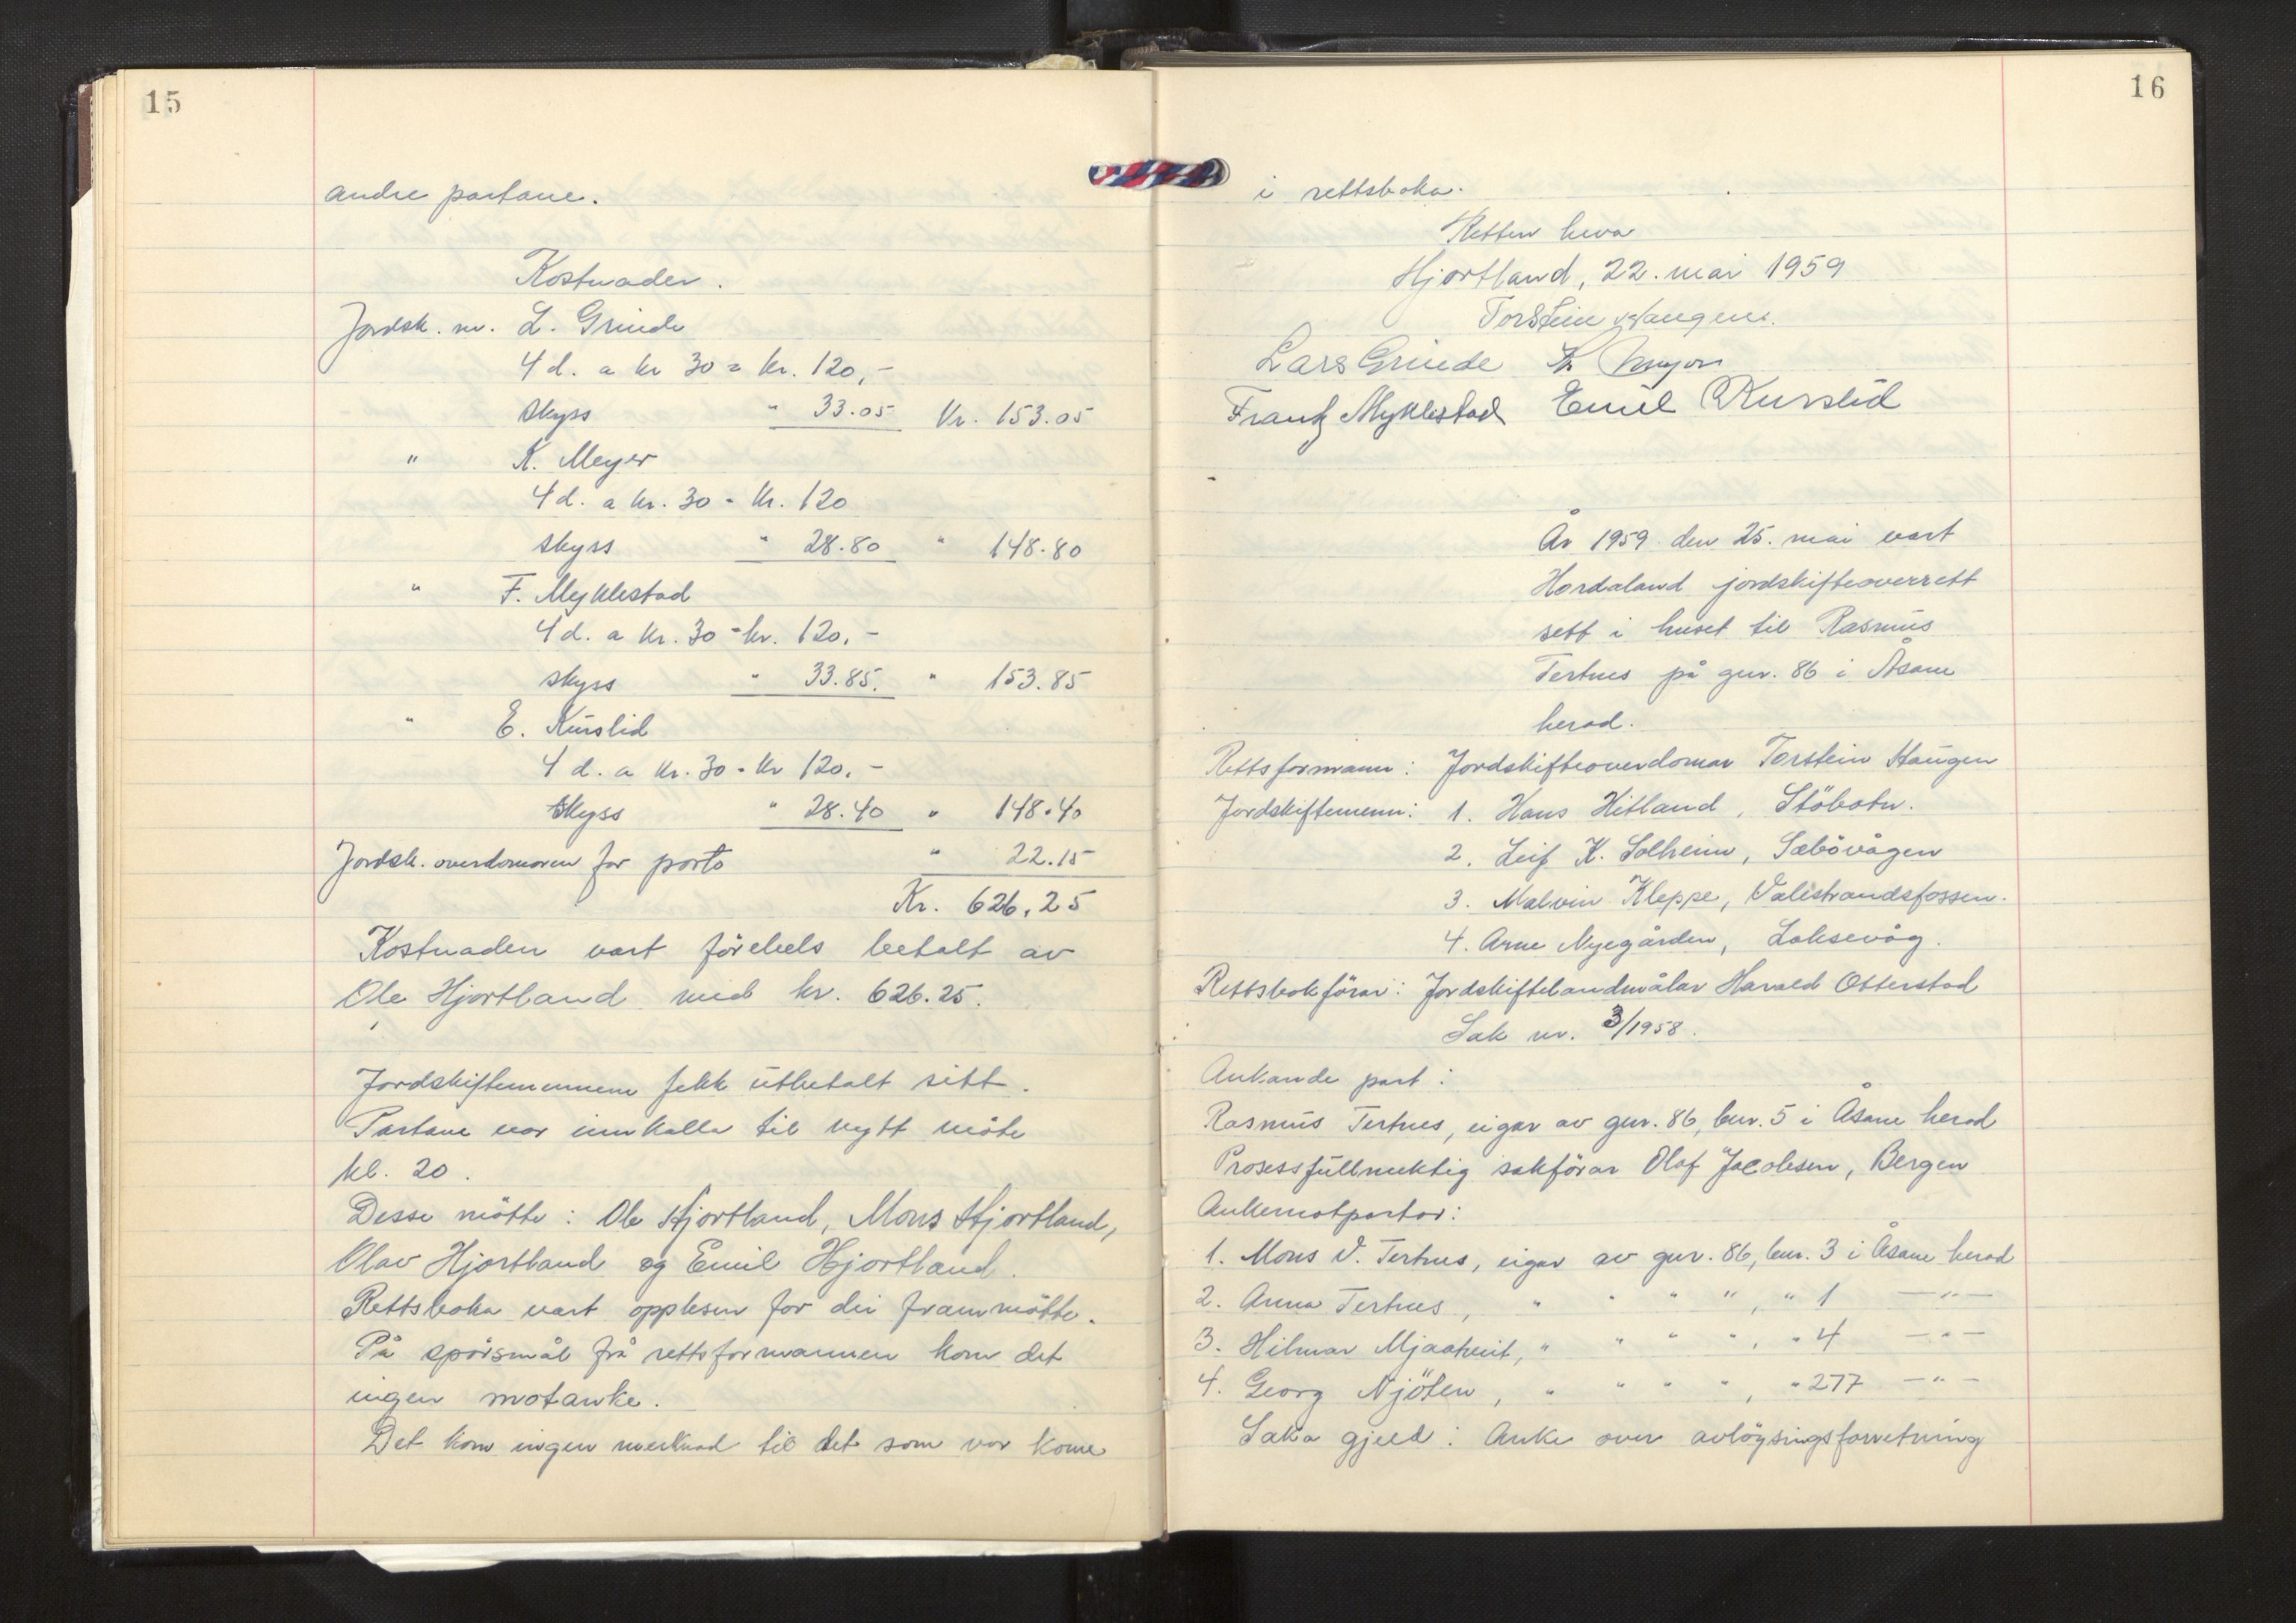 15
andre partane.
Kostnader.
Jordsk. m. L. Grinde
4 d. a kr 30 = kr. 120,-
skyss " 33.05 Kr. 153.05
" K. Meyer
4 d. a kr. 30 = kr. 120
skyss " 28.80 " 148.80
" F. Myklestad
4 d. a kr. 30 = kr. 120,-
skyss " 33.85. " 153.85
" E. Kurslid
4 d. a kr. 30 = kr 120,-
Skyss " 28.40 " 148.40
Jordsk. overdomaren for porto " 22.15
Kr. 626,25
Kostnaden vart förebels betalt av
Ole Hjortland med kr. 626.25.
Jordskiftemennene fekk utbetalt sitt.
Partane var innkalla til nytt möte
kl. 20.
Desse mötte: Ole Hjortland, Mons Hjortland,
Olav Hjortland og Emil Hjortland.
Rettsboka vart opplesen for dei frammötte.
På spörsmål frå rettsformannen kom det
ingen motanke.
Det kom ingen merknad til det som var kome
16
i rettsboka.
Retten heva
Hjortland, 22. mai 1959
Torstein Haugen.
Lars Grinde K Meyer
Frantz Myklestad Emil Kurslid
År 1959 den 25. mai vart
Hordaland jordskifteoverrett
sett i huset til Rasmus
Tertnes på gnr. 86 i Åsane
herad.
Rettsformann: Jordskifteoverdomar Torstein Haugen
Jordskiftemenn: 1. Hans Hitland, Stöbotn.
2. Leif K. Solheim, Sæbövågen
3. Malvin Kleppe, Valestrandsfossen.
4. Arne Nyegården, Laksevåg.
Rettsbokförar: Jordskiftelandmålar Harald Otterstad
Sak nr. 3/1958.
Ankande part:
Rasmus Tertnes, eigar av gnr. 86, bnr. 5 i Åsane herad
Prosessfullmektig sakförar Olaf Jacobsen, Bergen
Ankemotpartar:
1. Mons V. Tertnes, eigar av gnr. 86, bnr. 3 i Åsane herad
2. Anna Tertnes, " " " ", " 1 —"—
3. Hilmar Mjaatveit, " " " ", " 4 —"—
4. Georg Njöten, " " " ", " 277 —"—
Saka gjeld: Anke over avlöysingsforretning